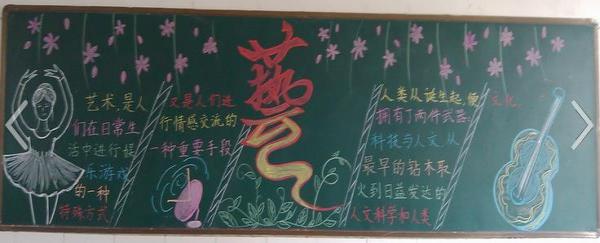 艺术,是人
们在日常生
活中进行娱
乐游戏
的一种
特殊方式
又是人们进
行情感交流的
一种重要手段
藝
人类从诞生起,便
拥有了两件武器:
科技与人文.从
最早的钻木取
火到日益发达的
人文科学和人类
文化.